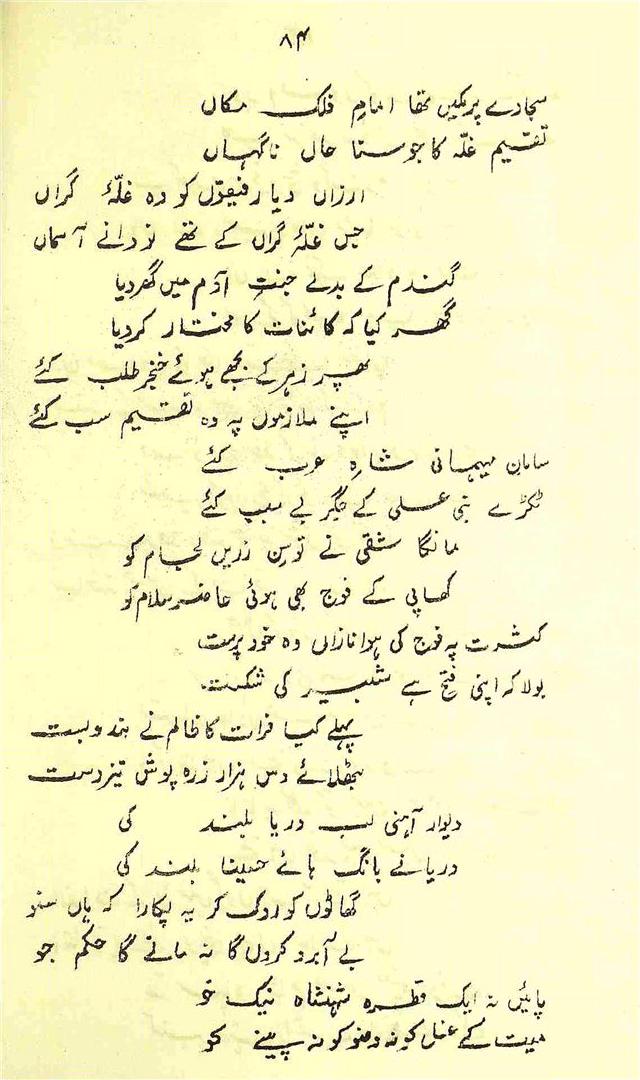 ۸۴
سجادے پر مکیں تھا امامِ فلک مکاں
تقسیم غلّہ کا جو سنا حال ناگہاں
ارزاں دیا رفیقوں کو وہ غلّۂ گراں
جس غلّۂ گراں کے تھے نو دانے آسماں
گندم کے بدلے جنتِ آدم میں گھر دیا
گھر کیا کہ کائنات کا مختار کر دیا
پھر زہر کے بجھے ہوئے خنجر طلب کئے
اپنے ملازموں پہ وہ تقسیم سب کئے
سامان میہمانی شاہِ عرب کئے
ٹکڑے نبی علی کے جگر بے سبب کئے
مانگا شقی نے توسنِ زریں لجام کو
کھا پی کے فوج بھی ہوئی حاضر سلام کو
کثرت پہ فوج کی ہوا نازاں وہ خود پرست
بولا کہ اپنی فتح ہے شبیر کی شکست
پہلے کیا فرات کا ظالم نے بندوبست
بٹھلائے دس ہزار زرہ پوش تیز دست
دیوار آہنی لب دریا بلند کی
دریا نے بانگ ہائے حسینا بلند کی
گھاٹوں کو روک کر یہ پکارا کہ ہاں سنو
بے آبرو کروں گا نہ مانے گا حکم جو
پائیں نہ ایک قطرہ شہنشاہ نیک خو
میت کے غسل کو نہ وضو کو نہ پینے کو